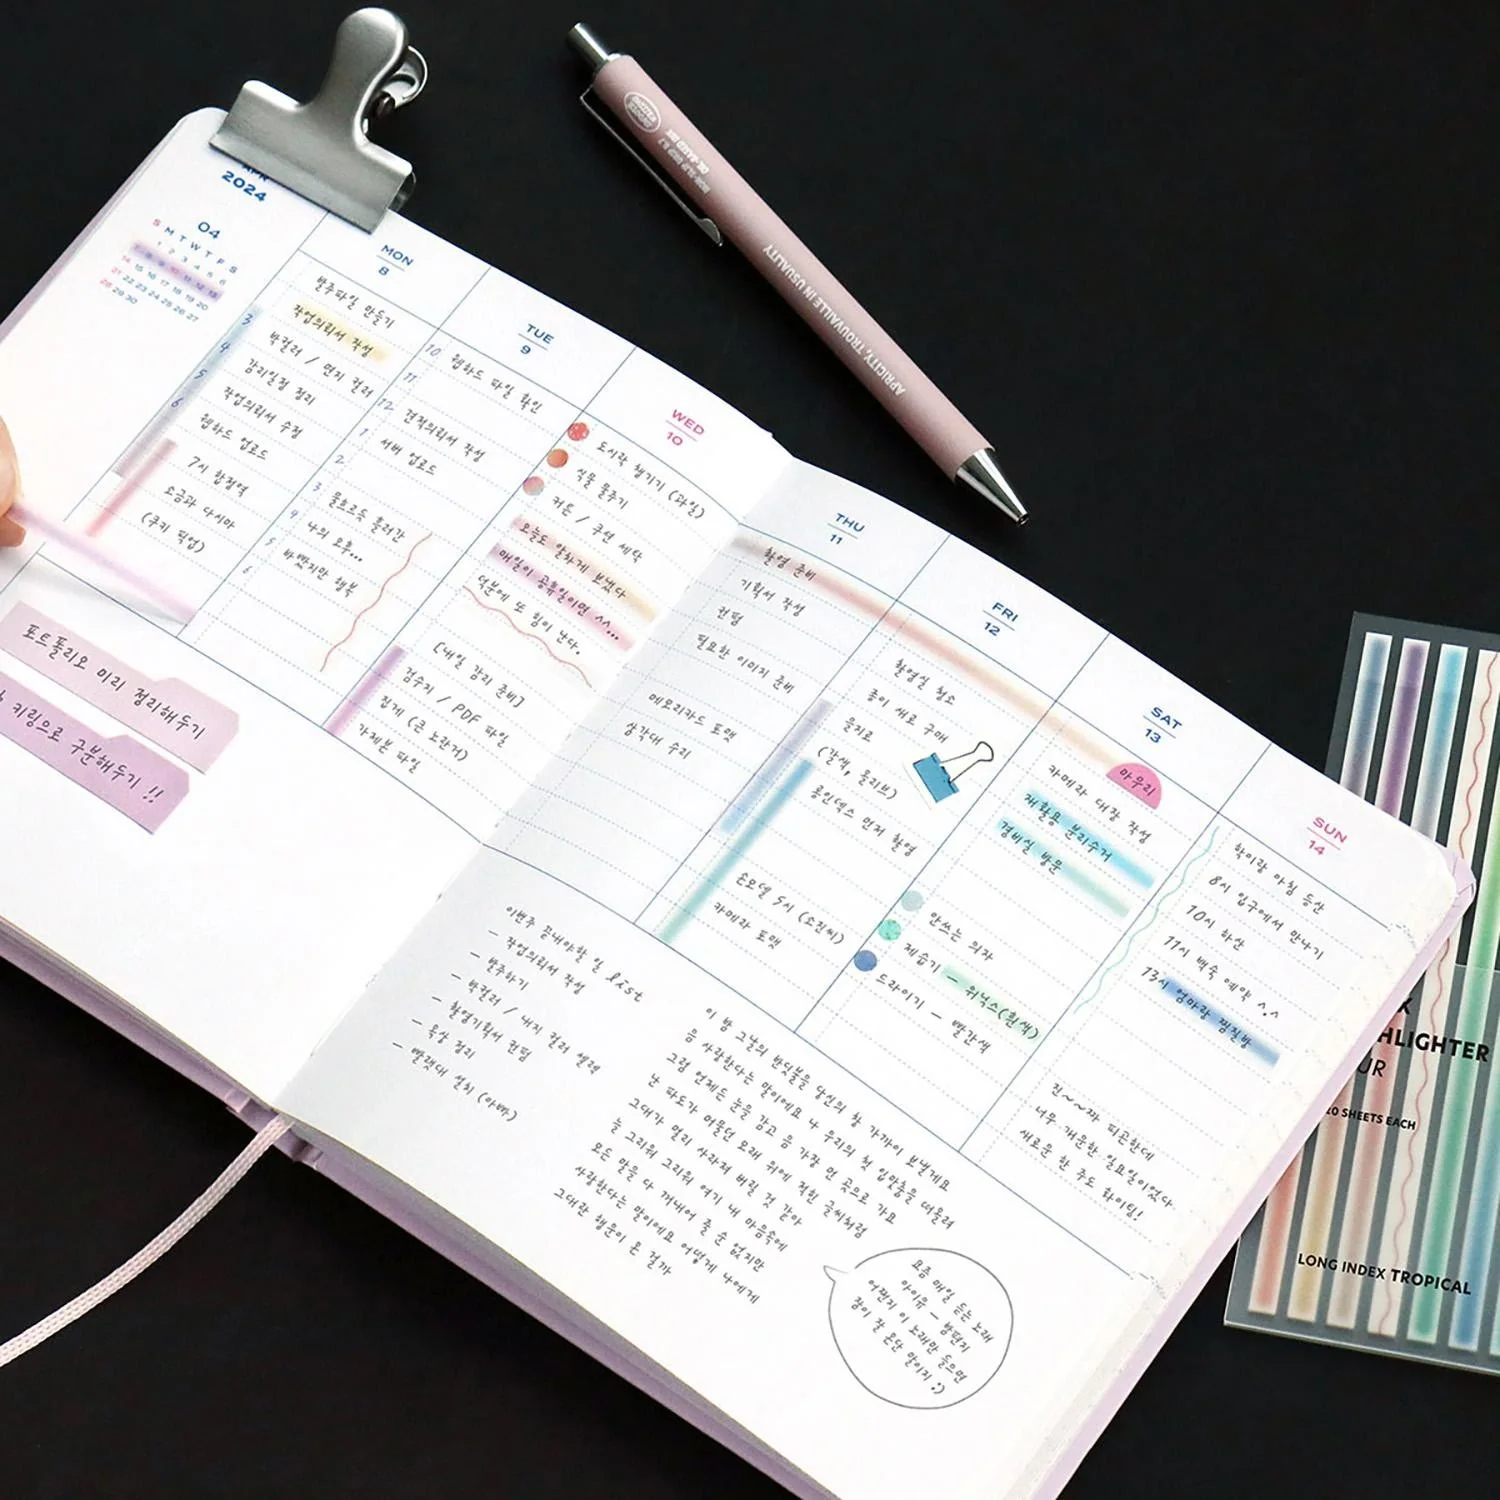 APR
2024
04
S M T W T F S
1 2 3 4 5 6
7 8 9 10 11 12 13
14 15 16 17 18 19 20
21 22 23 24 25 26 27
28 29 30
MON
8
발주파일 만들기
작업의뢰서 작성
3 박컬러 / 면지 컬러
4 감리일정 정리
5 작업의뢰서 수정
6 웹하드 업로드
7시 합정역
소금과 다시마
(쿠키 픽업)
TUE
9
10 웹하드 파일 확인
11
12 견적의뢰서 작성
1 서버 업로드
2
3 물흐르듯 흘러간
4 나의 오후...
5 바빴지만 행복
6
WED
10
도시락 챙기기 (과일)
식물 물주기
커튼 / 쿠션 세탁
오늘도 알차게 보냈다
매일이 공휴일이면 ^^...
덕분에 또 힘이 난다.
[내일 감리 준비]
검수지 / PDF 파일
집게 (큰 노란거)
가제본 파일
포트폴리오 미리 정리해두기
키링으로 구분해두기 !!
THU
11
촬영 준비
기획서 작성
컨펌
필요한 이미지 준비
메모리카드 포맷
삼각대 수리
FRI
12
촬영실 청소
종이 새로 구매
을지로
(갈색, 올리브)
롱인덱스 먼저 촬영
손모델 5시 (소진씨)
카메라 포맷
SAT
13
마무리
카메라 대장 작성
재활용 분리수거
경비실 방문
안쓰는 의자
제습기 - 위닉스(흰색)
드라이기 - 빨간색
SUN
14
학이랑 아침 등산
8시 입구에서 만나기
10시 하산
11시 백숙 예약 ^.^
13시 엄마랑 찜질방
진~~짜 피곤한데
너무 개운한 일요일이었다.
새로운 한 주도 화이팅!
이번주 끝내야할 일 list
- 작업의뢰서 작성
- 발주하기
박컬러 / 내지 컬러 셀렉
- 촬영기획서 컨펌
- 옥상 정리
- 빨랫대 설치 (아빠)
이 밤 그날의 반딧불을 당신의 창 가까이 보낼게요
음 사랑한다는 말이에요 나 우리의 첫 입맞춤을 떠올려
그럼 언제든 눈을 감고 음 가장 먼 곳으로 가요
난 파도가 머물던 모래 위에 적힌 글씨처럼
그대가 멀리 사라져 버릴 것 같아
늘 그리워 그리워 여기 내 마음속에
모든 말을 다 꺼내어 줄 순 없지만
사랑한다는 말이에요 어떻게 나에게
그대란 행운이 온 걸까
요즘 매일 듣는 노래
아이유 - 밤편지
어쩐지 이 노래만 들으면
잠이 잘 온단 말이지 :)
NON-SLIP GRIP 0.7
OIL-BASED INK
APRICITY, TROUVAILLE IN USUALITY
HLIGHTER
20 SHEETS EACH
LONG INDEX TROPICAL